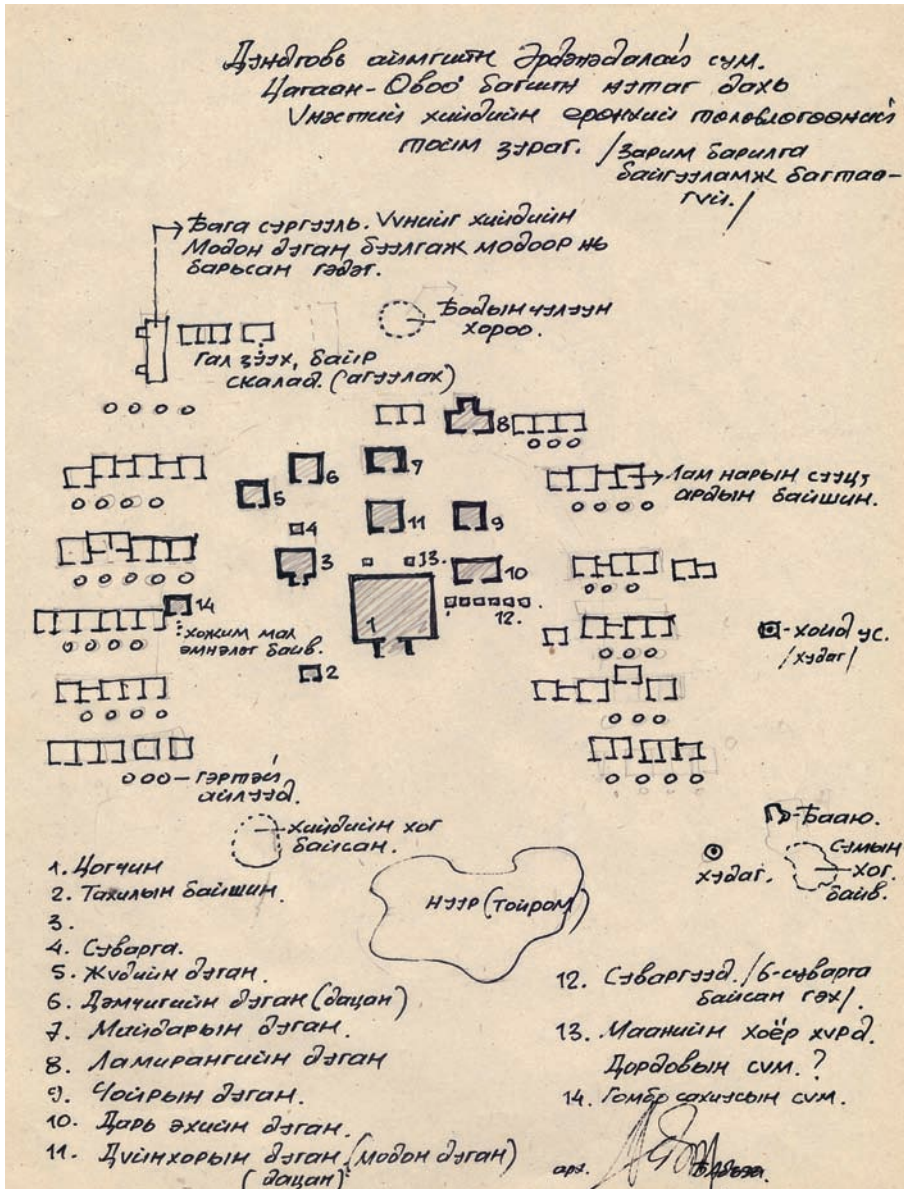 Дундговь аймгийн Эрдэнэдалай сум.
Цагаан-Овоо багийн нутаг дахь
Үнэстий хийдийн ерөнхий төлөвлөгөөний
тойм зураг. /Зарим барилга
байгууламж багтаа-
гүй./
Бага сургууль. Үүнийг хийдийн
Модон дуган буулгаж модоор нь
барьсан гэдэг.
Бодын чулуун
хороо.
Гал зуух, байр
склалад. (агуулах)
8
6
7
5
Лам нарын сууц,
ардын байшин.
4
11
9
3
13.
10
1
12.
14
хожим мал
эмнэлэг байв.
хойд ус.
/худаг/
2
гэртэй
айлууд.
Хийдийн хог
байсан.
Бааю.
худаг.
Сумын
хог.
байв.
нуур (тойром)
1. Цогчин
2. Тахилын байшин.
3.
4. Суварга.
5. Жүдийн дуган.
6. Дэмчигийн дуган (дацан)
7. Майдарын дуган.
8. Ламирангийн дуган
9. Чойрын дуган.
10. Дарь эхийн дуган.
11. Дүйнхорын дуган (модон дуган)
(дацан)
12. Суваргууд. /6-суварга
байсан гэх/.
13. Маанийн хоёр хүрд.
Дордовын сүм. ?
14. Гомбо сахиусын сүм.
арх.